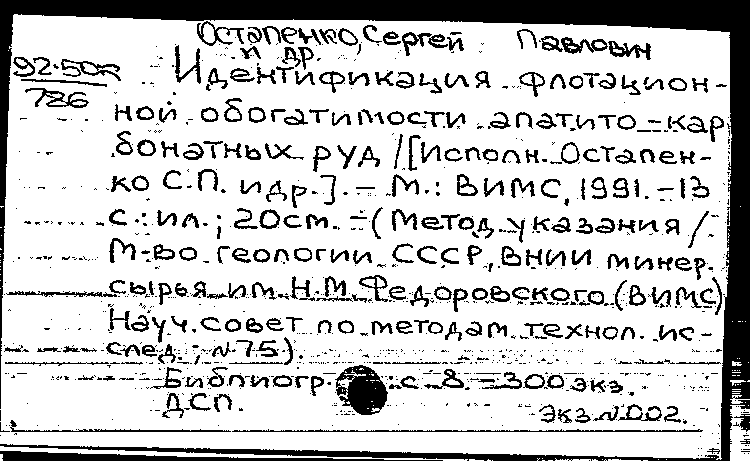 Остапенко, Сергей Павлович
и др.
92-50R
786
Идентификация флотацион-
ной обогатимости апатито-кар
бонатных руд / [Исполн. Остапен-
ко С.П. и др.]. - М.: ВИМС, 1991. - 13
с.: ил.; 20см. - (Метод. указания /
М-во геологии СССР, ВНИИ минер.
сырья им. Н.М. Федоровского (ВИМС)
Науч. совет по методам технол. ис-
след.; N75).
Библиогр.: с 8. - 300 экз.
ДСП.
экз. N 002.